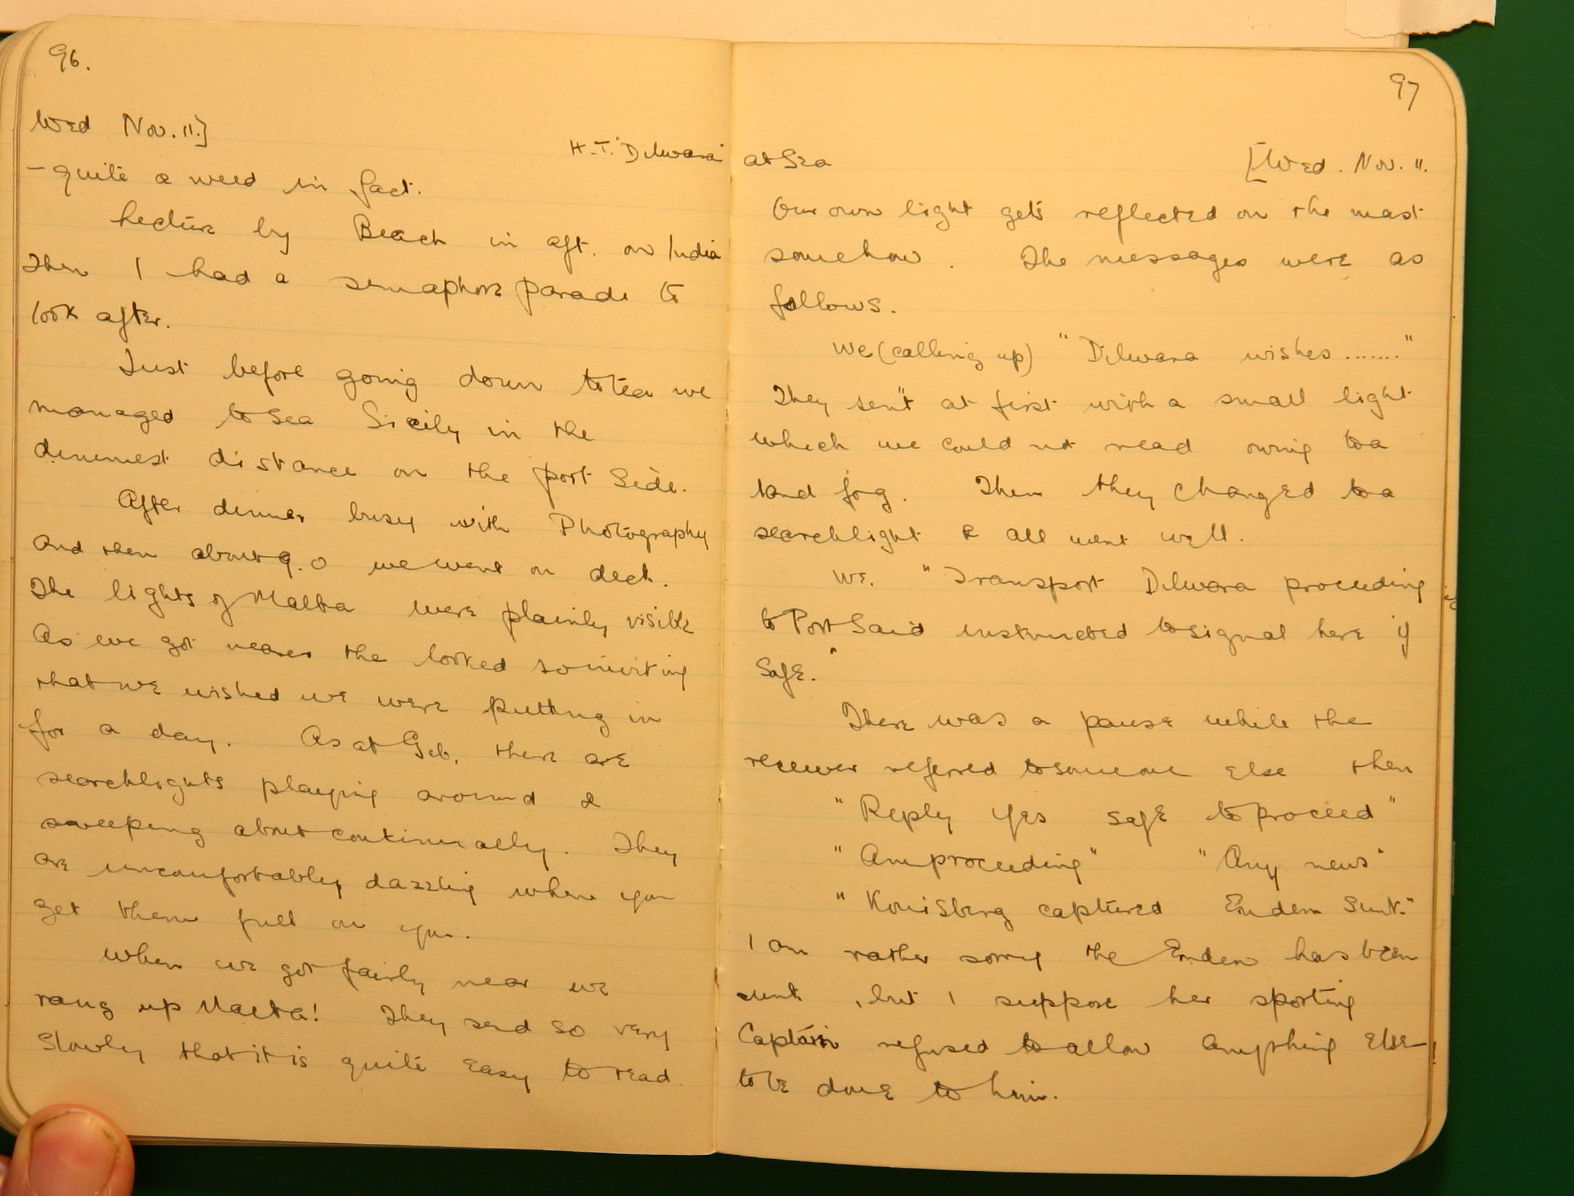 96.
Wed Nov. 11.]
H.T. "Dilwara"
- quite a weed in fact.
Lecture by Beach in aft. on India
Then I had a semaphore parade to
look after.
Just before going down to tea we
managed to sea Sicily in the
dimmest distance on the port side.
After dinner busy with Photography
and then about 9.0 we went on deck.
The lights of Malta were plainly visible
As we got nearer the looked so inviting
that we wished we were putting in
for a day. As at Gib. there are
searchlights playing around &
sweeping about continually. They
are uncomfortably dazzling when you
get them full on you.
When we got fairly near we
rang up Malta! They send so very
slowly that it is quite easy to read.
97
at Sea
[Wed. Nov. 11.
Our own light gets reflected on the mast
somehow. The messages were as
follows.
We (calling up) "Dilwara wishes ......."
They sent at first with a small light
which we could not read owing to a
land fog. Then they changed to a
searchlight & all went well.
We. "Transport Dilwara proceeding
to Port Said instructed to signal here if
safe."
There was a pause while the
receiver referred to someone else then
"Reply Yes safe to proceed"
"Am proceeding" "Any news"
"Konisberg captured Emden Sunk."
I am rather sorry the Emden has been
sunk, but I suppose her sporting
Captain refused to allow anything else
to be done to him.